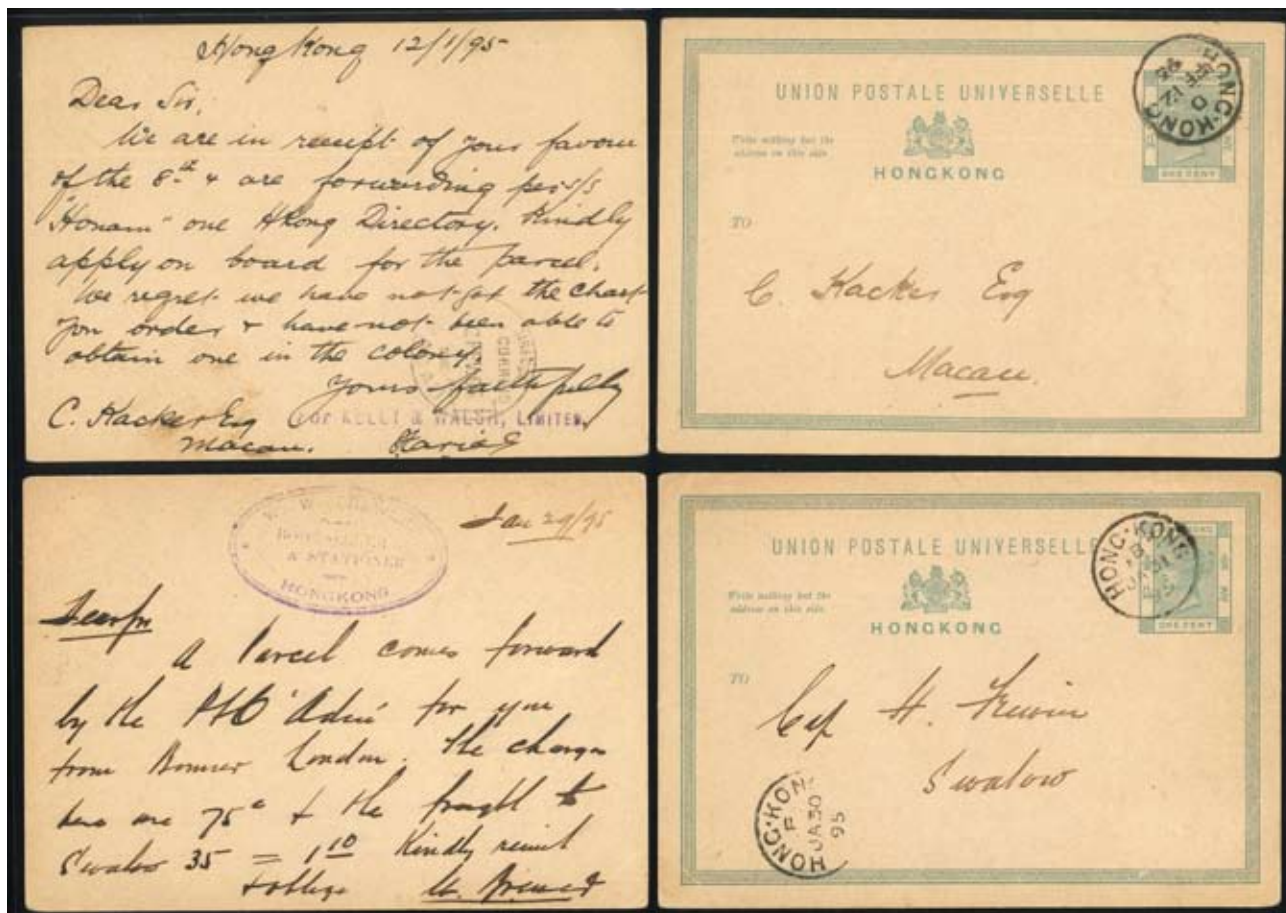 Hong Kong 12/1/95
Dear Sir,
We are in receipt of your favour
of the 8th & are forwarding per s/s
"Honam" one HKong Directory. Kindly
apply on board for the parcel.
We regret we have not got the chart
you order & have not been able to
obtain one in the colony.
Yours faithfully
For KELLY & WALSH, LIMITED,
C. Kacker Esq
Macau.
HONG-KONG
D
FE 12
95
UNION POSTALE UNIVERSELLE
Write nothing but the
address on this side
HONGKONG
ONE CENT
TO
C. Kacker Esq
Macau.
BOOKSELLER
& STATIONER
HONGKONG
Jan 29/95
Dear Sir
A Parcel comes forward
by the P&O 'Aden' for you
from London. The charges
here are 75c & the freight to
Swatow 35 = 1 10 Kindly remit
& oblige
UNION POSTALE UNIVERSELLE
HONG-KONG
Write nothing but the
address on this side
HONGKONG
ONE CENT
TO
Cap H.
Swatow
HONG-KON
F
JA 30
95